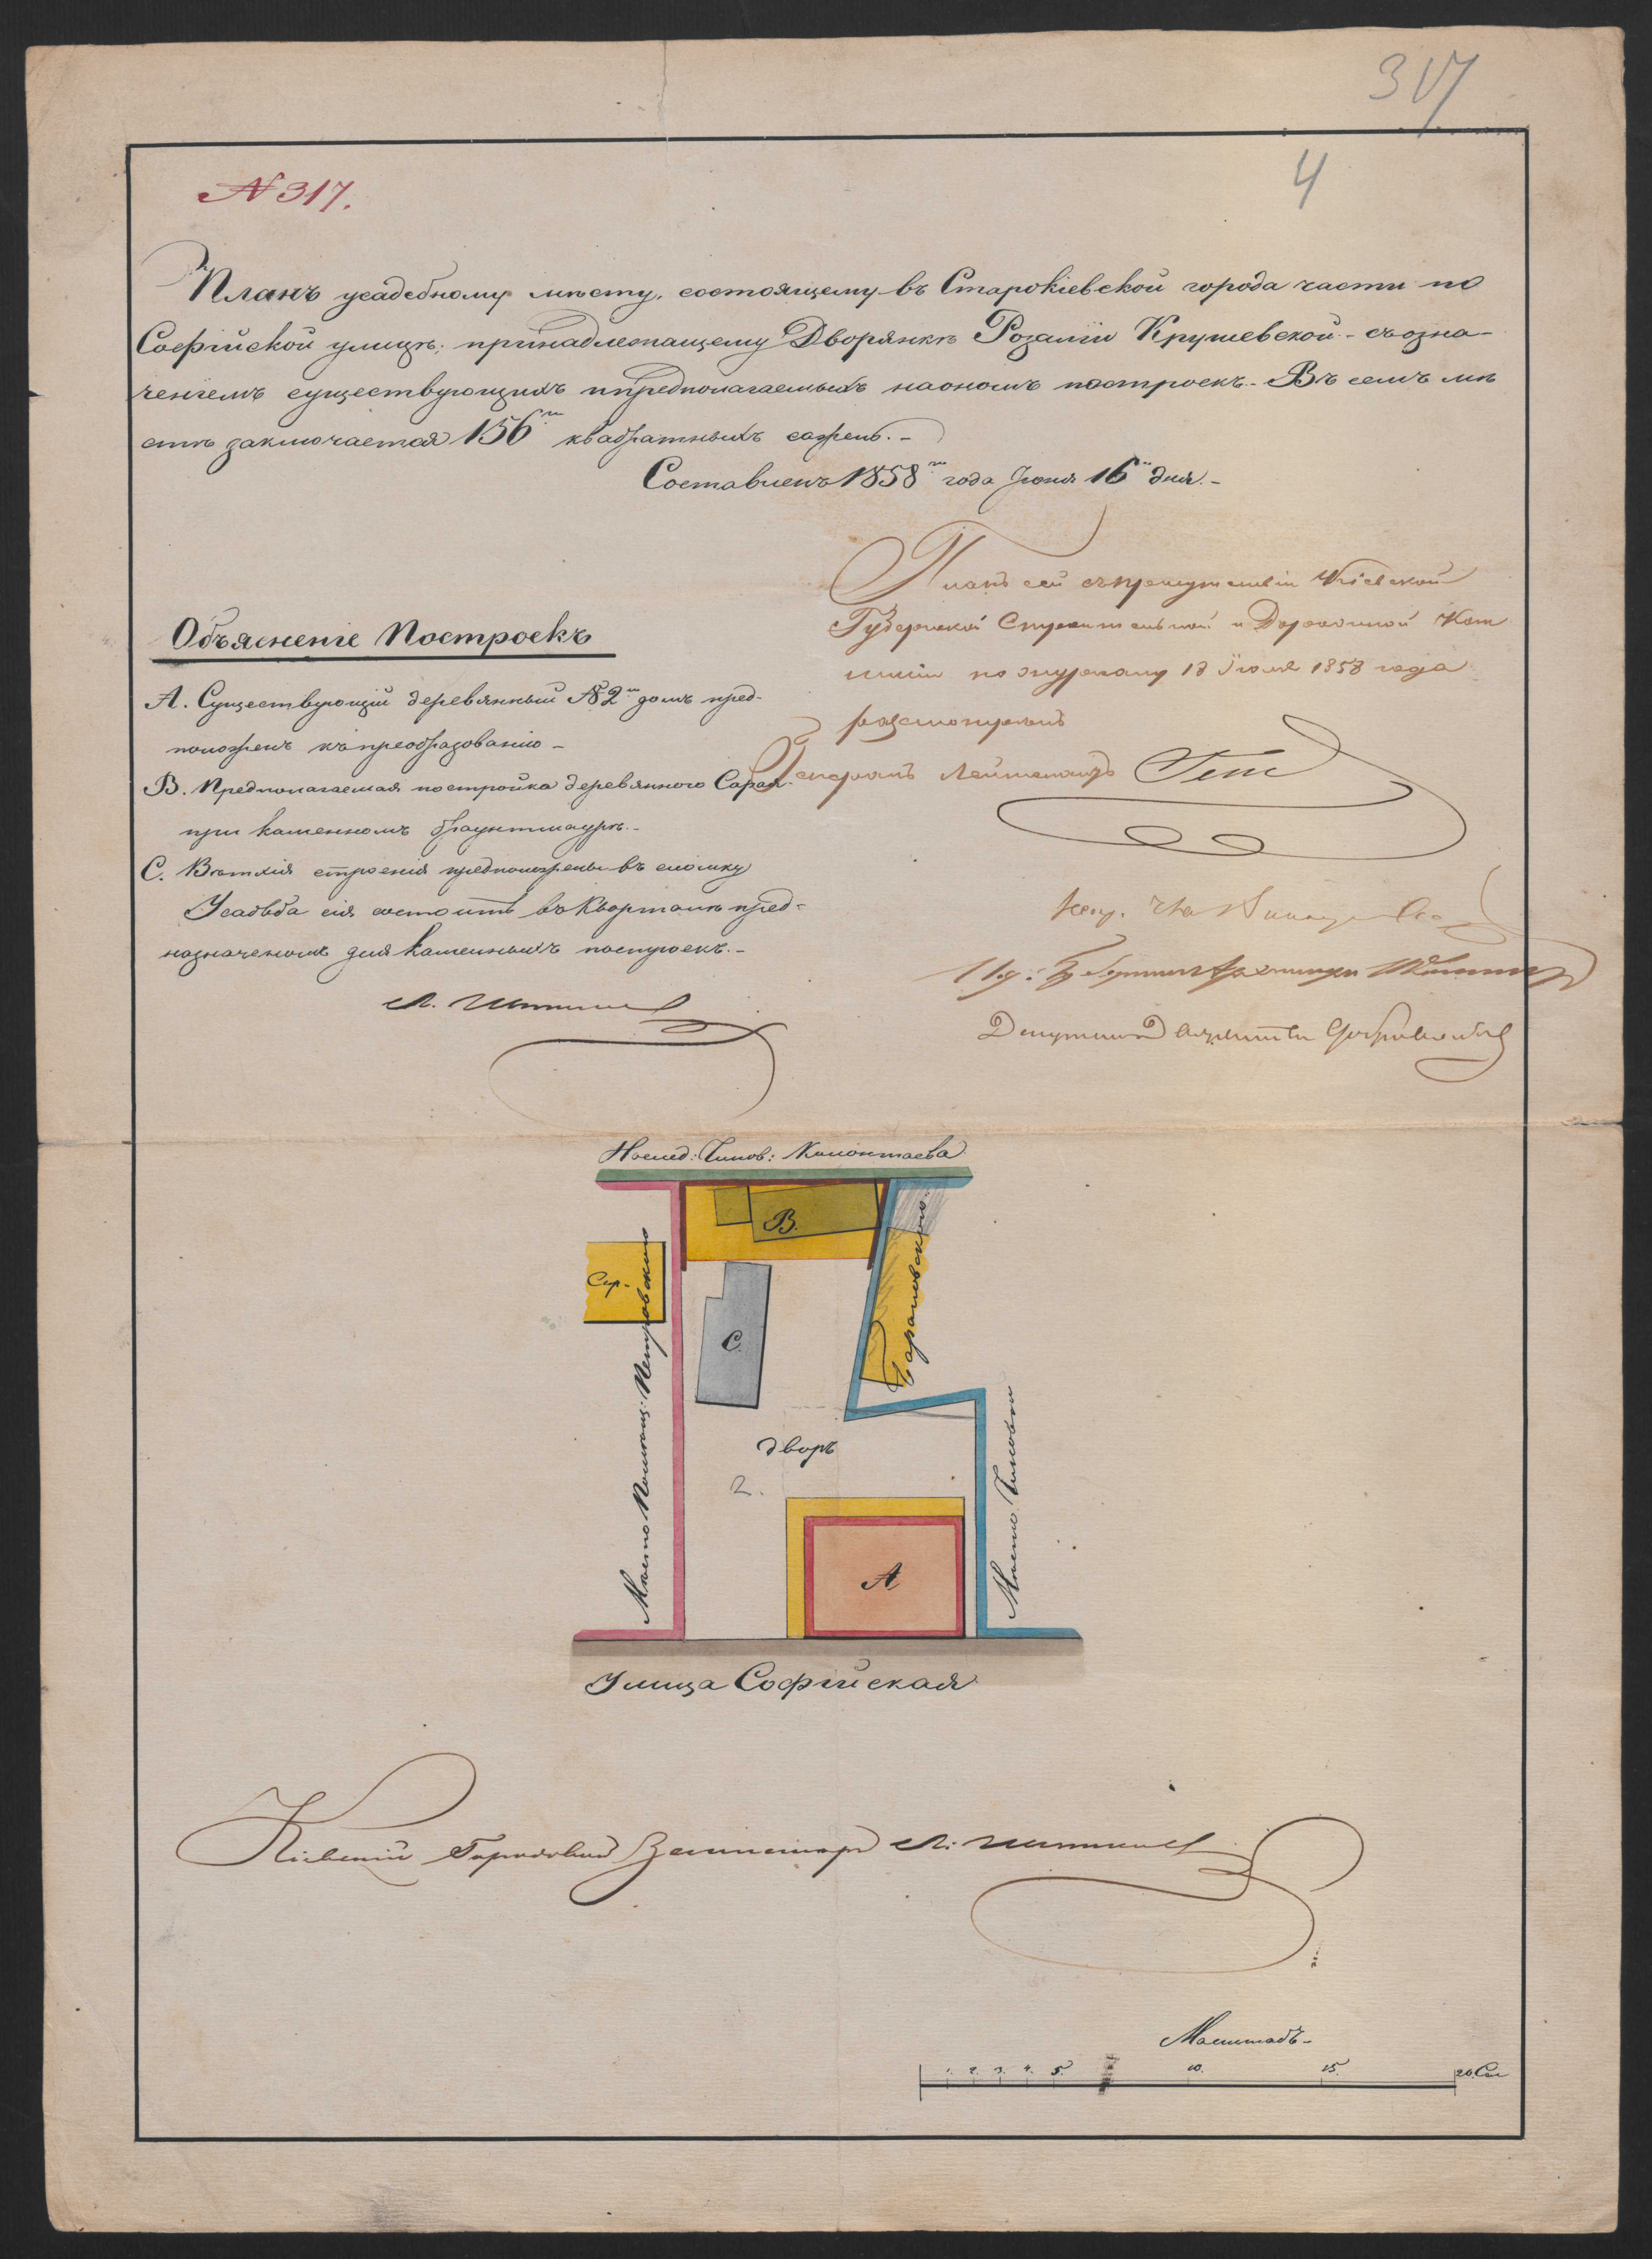 317
4
№ 317.
Планъ усадебному мѣсту, состоящему въ Старокіевской города части по
Софійской улицѣ, принадлежащему Дворянкѣ Розаліи Крушевской - съозна-
ченіемъ существующихъ ипредполагаемыхъ наономъ построекъ. - Въ семъ мѣ
стѣ заключается 156ти квадратныхъ сажень. -
Составленъ 1858го года Іюня 16го дня. -
Планъ сей въ Кіевской
Губернской Строительной и Дорожной Ком
мисіи по журналу 18 Іюля 1858 года
разсмотренъ
Генералъ Лейтенантъ Гессе
Объясненіе Построекъ
А. Существующій деревянный №2й домъ пред-
положенъ къ преобразованію -
В. Предполагаемая постройка деревянного Сарая
при каменномъ брантмаурѣ. -
С. Ветхія строенія предположены въ сломку
Усадьба сія состоитъ въ Кварталѣ пред-
назначеномъ для каменныхъ построекъ. -
Депутатъ
Наслед: Чинов: Колонтаева
В.
Сар.
С.
Барановского
Мѣсто Помѣщ: Петровского
дворъ
2.
А
Мѣсто Чиновни
Улица Софійская
Кіевскій Городовой Землемеръ
Масштабъ -
1. 2. 3. 4. 5. 10. 15. 20. Саж